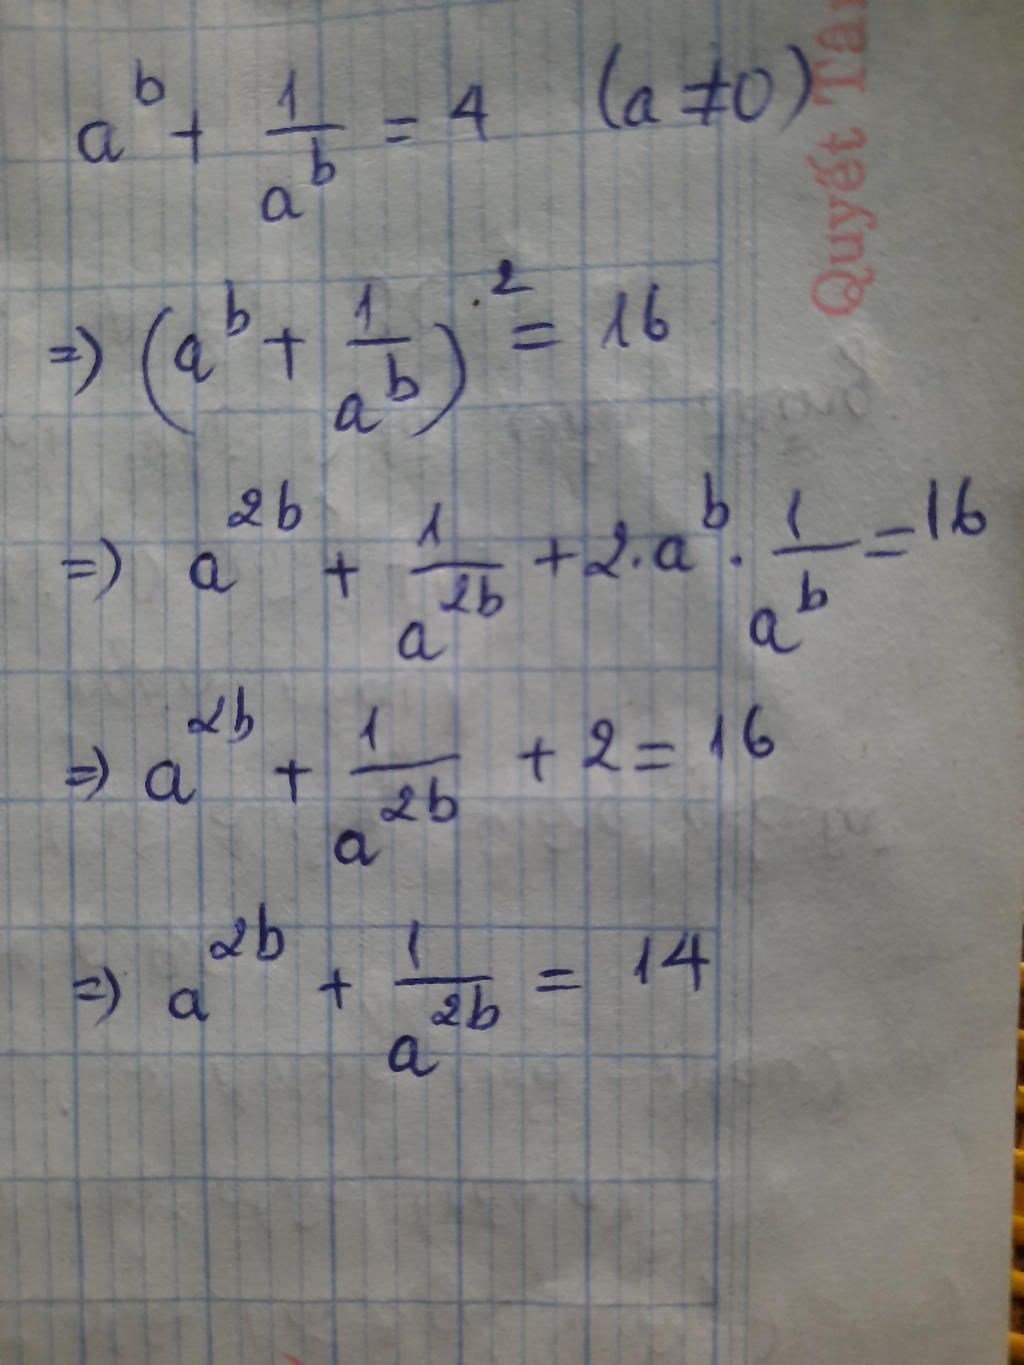 a^b + 1/a^b = 4 (a ≠ 0)
=) (a^b + 1/a^b)^2 = 16
=) a^2b + 1/a^2b + 2.a^b . 1/a^b = 16
=) a^2b + 1/a^2b + 2 = 16
=) a^2b + 1/a^2b = 14
Quyết